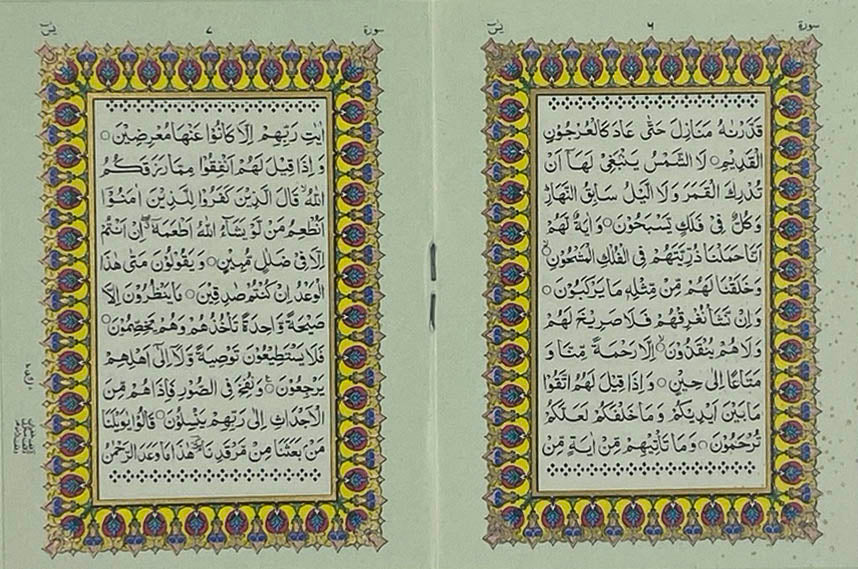 سورة ٦ يٰسٓ
قَدَّرْنٰهُ مَنَازِلَ حَتّٰى عَادَ كَالْعُرْجُوْنِ
الْقَدِيْمِ○ لَا الشَّمْسُ يَنْۢبَغِىْ لَهَاۤ اَنْ
تُدْرِكَ الْقَمَرَ وَلَا الَّيْلُ سَابِقُ النَّهَارِؕ
وَكُلٌّ فِىْ فَلَكٍ يَّسْبَحُوْنَ○ وَاٰيَةٌ لَّهُمْ
اَنَّا حَمَلْنَا ذُرِّيَّتَهُمْ فِى الْفُلْكِ الْمَشْحُوْنِ○ۙ
وَخَلَقْنَا لَهُمْ مِّنْ مِّثْلِهٖ مَا يَرْكَبُوْنَ○
وَاِنْ نَّشَاْ نُغْرِقْهُمْ فَلَا صَرِيْخَ لَهُمْ
وَلَا هُمْ يُنْقَذُوْنَ○ۙ اِلَّا رَحْمَةً مِّنَّا وَ
مَتَاعًا اِلٰى حِيْنٍ○ وَاِذَا قِيْلَ لَهُمُ اتَّقُوْا
مَا بَيْنَ اَيْدِيْكُمْ وَمَا خَلْفَكُمْ لَعَلَّكُمْ
تُرْحَمُوْنَ○ وَمَا تَاْتِيْهِمْ مِّنْ اٰيَةٍ مِّنْ
سورة ٧ يٰسٓ
اٰيٰتِ رَبِّهِمْ اِلَّا كَانُوْا عَنْهَا مُعْرِضِيْنَ○
وَاِذَا قِيْلَ لَهُمْ اَنْفِقُوْا مِمَّا رَزَقَكُمُ
اللّٰهُۙ قَالَ الَّذِيْنَ كَفَرُوْا لِلَّذِيْنَ اٰمَنُوْۤا
اَنُطْعِمُ مَنْ لَّوْ يَشَآءُ اللّٰهُ اَطْعَمَهٗۤۖ اِنْ اَنْتُمْ
اِلَّا فِىْ ضَلٰلٍ مُّبِيْنٍ○ وَيَقُوْلُوْنَ مَتٰى هٰذَا
الْوَعْدُ اِنْ كُنْتُمْ صٰدِقِيْنَ○ مَا يَنْظُرُوْنَ اِلَّا
صَيْحَةً وَّاحِدَةً تَاْخُذُهُمْ وَهُمْ يَخِصِّمُوْنَ○
فَلَا يَسْتَطِيْعُوْنَ تَوْصِيَةً وَّلَاۤ اِلٰٓى اَهْلِهِمْ
يَرْجِعُوْنَ○ وَنُفِخَ فِى الصُّوْرِ فَاِذَا هُمْ مِّنَ
الْاَجْدَاثِ اِلٰى رَبِّهِمْ يَنْسِلُوْنَ○ قَالُوْا يٰوَيْلَنَا
مَنْۢ بَعَثَنَا مِنْ مَّرْقَدِنَا هٰذَا مَا وَعَدَ الرَّحْمٰنُ